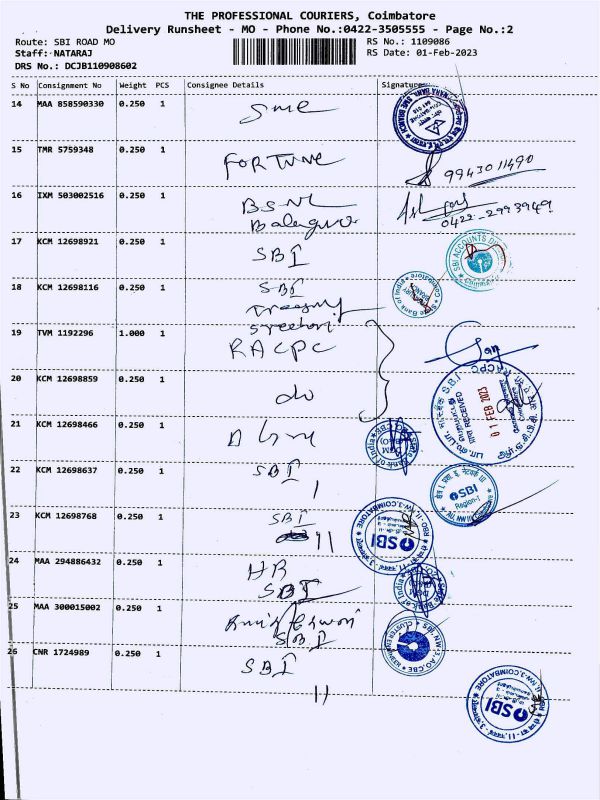 THE PROFESSIONAL COURIERS, Coimbatore
Delivery Runsheet - MO - Phone No.:0422-3505555 - Page No.:2
Route: SBI ROAD MO RS No.: 1109086
Staff: NATARAJ RS Date: 01-Feb-2023
DRS No.: DCJB110908602
S No Consignment No Weight PCS Consignee Details Signature
14 MAA 858590330 0.250 1 SME
15 TMR 5759348 0.250 1 FORTUNE 9943011490
16 IXM 503002516 0.250 1 BSNL
0422-2993949
17 KCM 12698921 0.250 1 SBI
18 KCM 12698116 0.250 1 SBI
Treasury
19 TVM 1192296 1.000 1 RACPC
20 KCM 12698859 0.250 1 do
01 FEB 2023
21 KCM 12698466 0.250 1
22 KCM 12698637 0.250 1 SBI
I
SBI
Region-I
23 KCM 12698768 0.250 1 SBI
II
SBI
24 MAA 294886432 0.250 1 HR
SBI
25 MAA 300015002 0.250 1
SBI
26 CNR 1724989 0.250 1 SBI
II
SBI